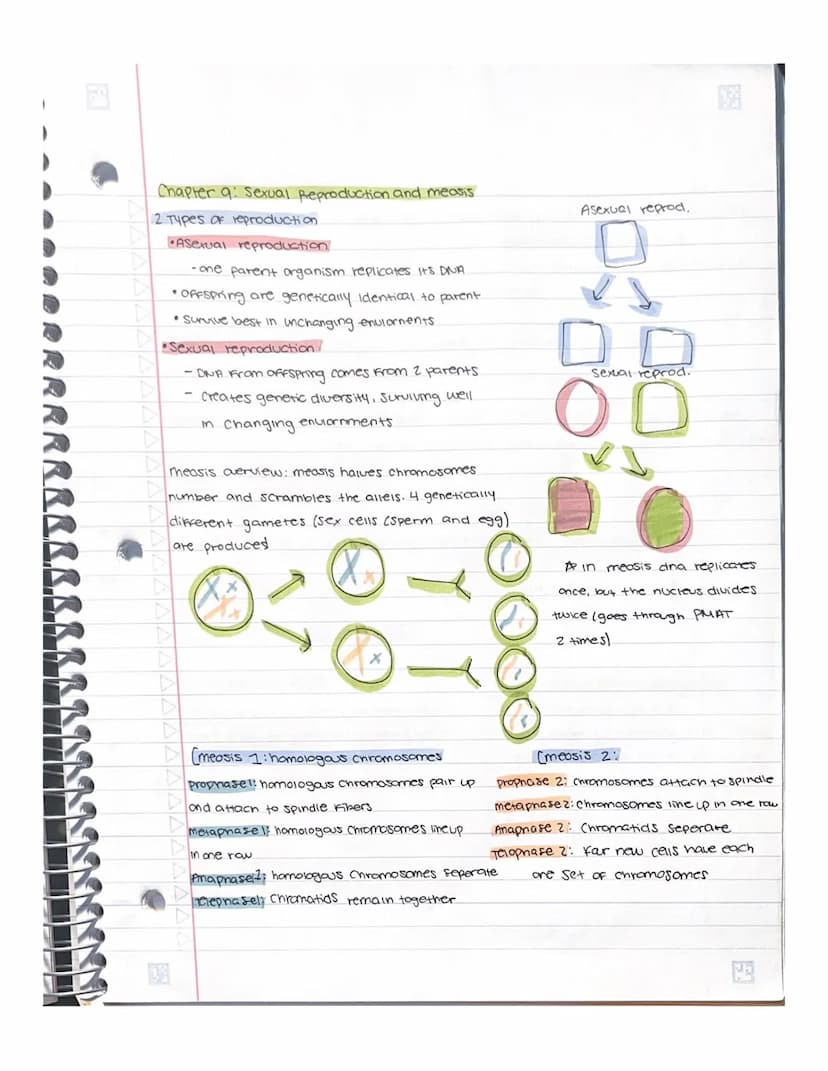 Chapter 9: Sexual Reproduction and meosis
2 Types of reproduction
•Asexual reproduction
-one parent organism replicates its DNA
•OFFspring are genetically identical to parent
•Survive best in unchanging enviornents
•Sexual reproduction
- DNA From OFFspring comes From 2 parents
- Creates genetic diversity, surviving well
in changing enviornments
Asexual reprod.
Sexual reprod.
meosis overview: meosis halves chromosomes
number and scrambles the allels. 4 genetically
different gametes (sex cells (sperm and egg)
are produced
in meosis dna replicates
once, but the nucleus divides
twice (goes through PMAT
2 times)
meosis 1: homologous chromosomes
Prophase 1: homologous chromosomes pair up
and attach to spindle fibers
metaphase 1: homologous chromosomes line up
in one row
Anaphase 1: homologous chromosomes seperate
Telephase 1: chromatids remain together
meosis 2:
Prophase 2: chromosomes attach to spindle
metaphase 2: chromosomes line up in one row
Anaphase 2: Chromatids seperate
Telophase 2: Four new cells have each
one set of chromosomes